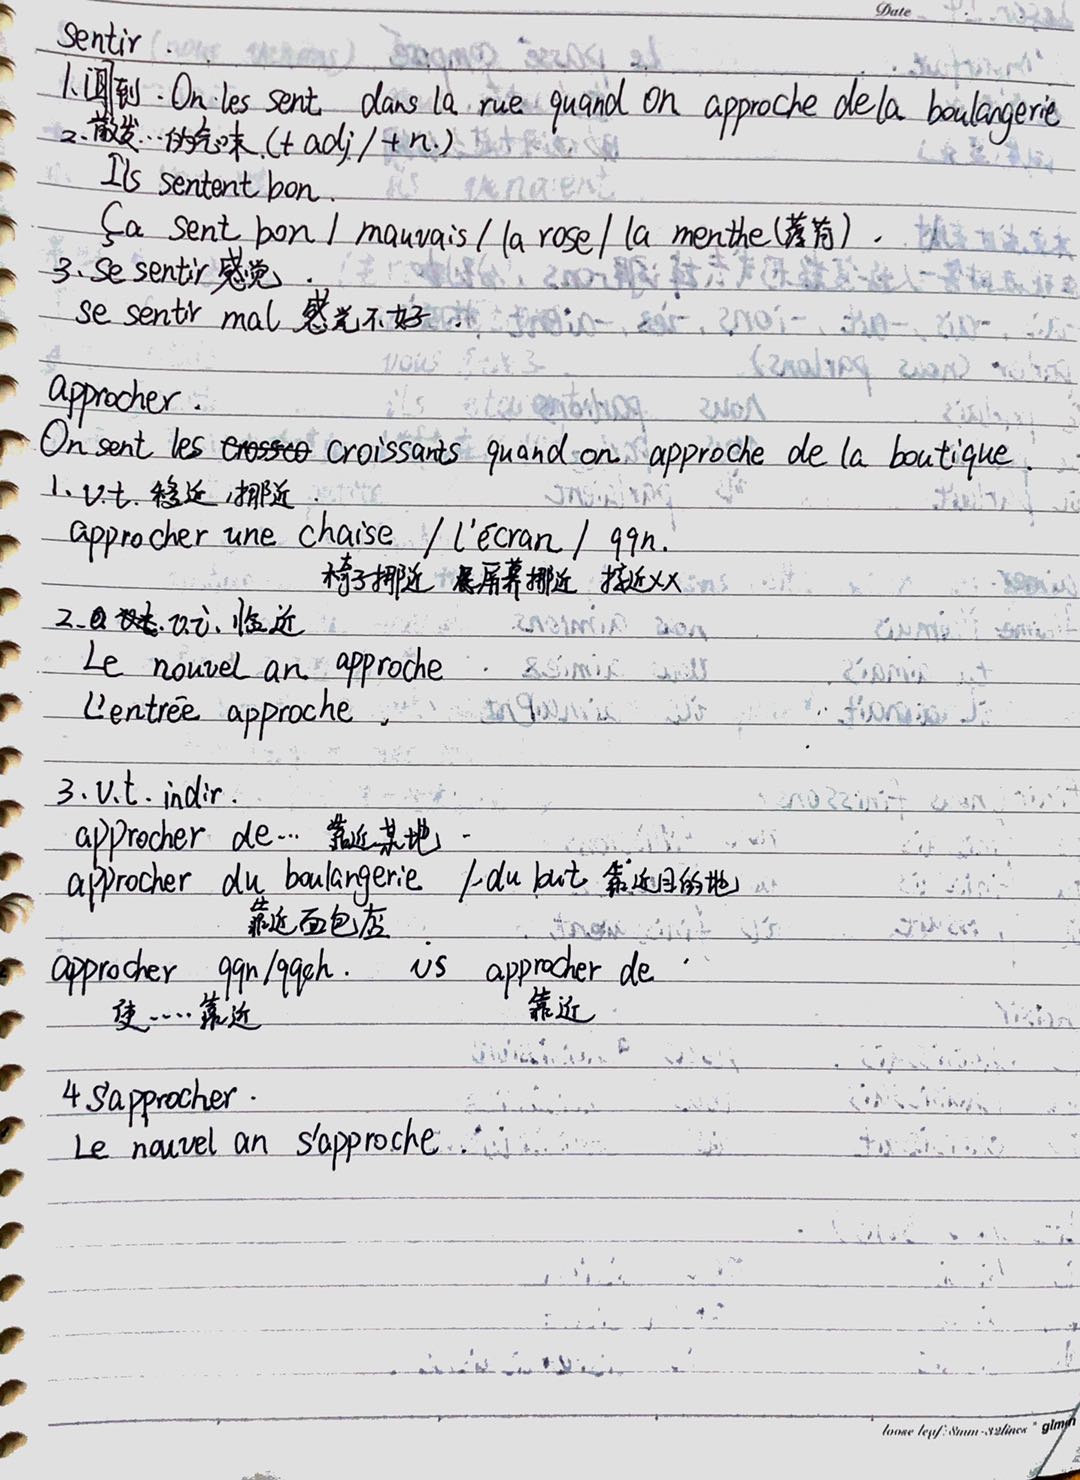 Date
sentir.
1.闻到. On les sent dans la rue quand on approche de la boulangerie
2.散发…的气味.(+ adj/+n.)
Ils sentent bon.
Ça sent bon / mauvais / la rose / la menthe(薄荷).
3.se sentir 感觉.
se sentir mal 感觉不好.
approcher.
On sent les croissants quand on approche de la boutique.
1. v.t. 移近,挪近.
approcher une chaise / l'écran / qqn.
椅子挪近 屏幕挪近 接近××
2. v.i. 临近
Le nouvel an approche.
L'entrée approche.
3. v.t. indir.
approcher de… 靠近某地.
approcher du boulangerie /~du but 靠近目的地
靠近面包店
approcher qqn/qqch. vs approcher de
使……靠近 靠近
4 S'approcher.
Le nouvel an s'approche.
loose leaf: 8mm-32lines